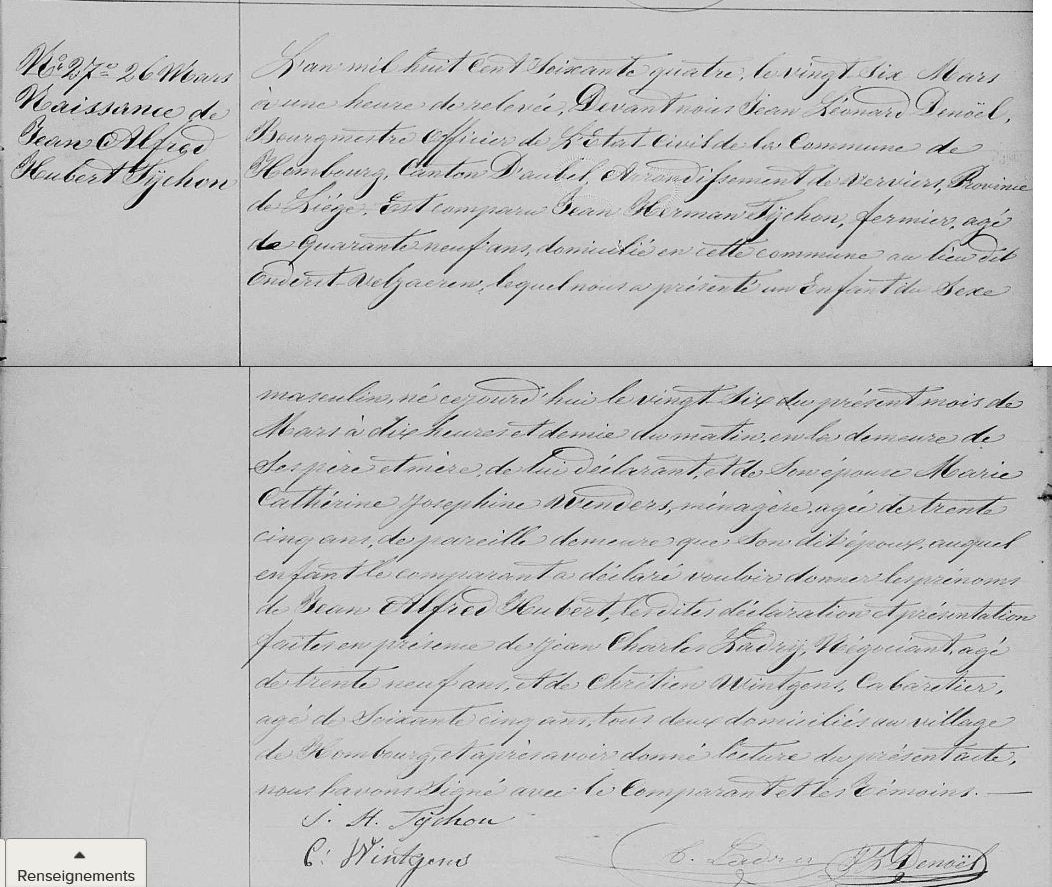 No 27e 26 Mars
Naissance de
Jean Alfred
Hubert Tÿchon
L'an mil huit Cent Soixante quatre, le vingt Six Mars
à une heure de relevée, Devant nous Jean Léonard Denoël,
Bourgmestre Officier de L'Etat Civil de la Commune de
Hombourg, Canton D'aubel, Arrondissement de verviers, Province
de Liége, Est comparu Jean Herman Tÿchon, fermier, agé
de quarante neuf ans, domicilié en cette commune au lieu dit
lequel nous a présenté un Enfant du Sexe
masculin, né cejourd'hui le vingt Six du présent mois de
Mars à dix heures et demie du matin, en la demeure de
Ses père et mère, de lui déclarant, et de Son épouse Marie
Cathérine Josephine Wenders, ménagère, agée de trente
cinq ans, de pareille demeure que Son dit époux, auquel
enfant le comparant a déclaré vouloir donner les prénoms
de Jean Alfred Hubert, lesdites déclaration et présentation
faites en présence de Jean Charles Ladry, Negociant, agé
de trente neuf ans, et de Chrétien Wintgens, Cabaretier,
agé de Soixante cinq ans, tous deux domiciliés au village
de Hombourg, et après avoir donné lecture du présent acte,
nous l'avons Signé avec le Comparant et les Témoins. —
J. H. Tÿchon
C. Wintgens
C. Ladry JL Denoël
Renseignements